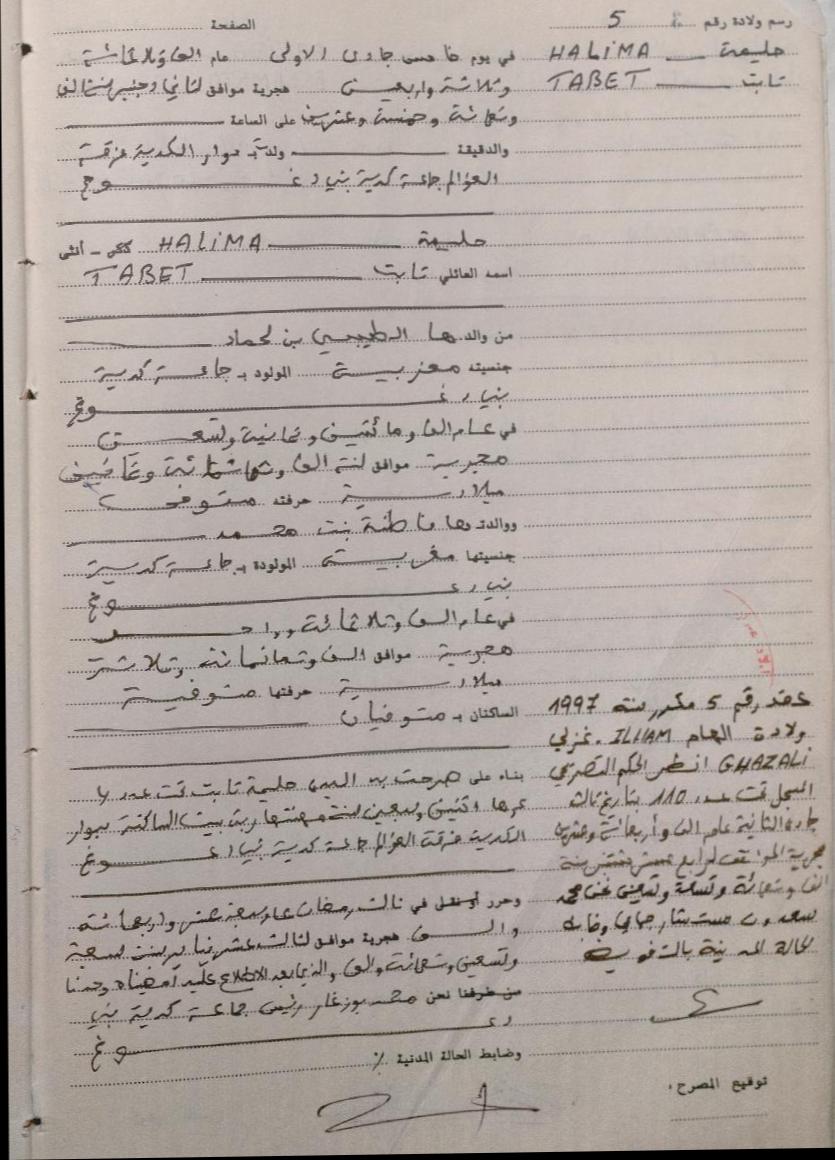 رسم ولادة رقم 5
الصفحة
حليمة HALIMA
ثابت TABET
في يوم خامس جمادى الاولى عام الف وثلاثمائة
وثلاثة واربعين هجرية موافق لثاني دجنبر سنة الف
وتسعمائة وخمسة وعشرين على الساعة
والدقيقة ولدت بـ دوار الكدية فرقة
العوالم جماعة كدية بني دغوغ
حليمة HALIMA ذكر - أنثى
اسمه العائلي ثابت TABET
من والدها الطيبي بن لحماد
جنسيته مغربية المولود بـ جماعة كدية
بني دغوغ
في عام الف ومائتين وثمانية وتسعين
هجرية موافق لسنة الف وثمانمائة وثمانين
ميلادية حرفته متوفى
ووالدتها فاطنة بنت محمد
جنسيتها مغربية المولودة بـ جماعة كدية
بني دغوغ
في عام الف وثلاثمائة وواحد
هجرية موافق الف وثمانمائة وثلاثة
ميلادية حرفتها متوفية
الساكنان بـ متوفيان
بناء على صرحت به السيدة حليمة ثابت تحت عدد 4
عمرها اثنين وسبعين سنة مهنتها ربة بيت الساكنة بدوار
الكدية فرقة العوالم جماعة كدية بني دغوغ
وحرر أو نقل في ثالث رمضان عام سبعة عشر واربعمائة
والف هجرية موافق لثالث عشر يناير سنة سبعة
وتسعين وتسعمائة والف والذي بعد الاطلاع عليه أمضيناه وحدنا
من طرفنا نحن محمد بوزغار رئيس جماعة كدية بني
دغوغ
وضابط الحالة المدنية
عقد رقم 5 مكرر سنة 1997
ولادة الهام ILHAM. غزلي
GHAZALI انظر الحكم التصريحي
المسجل تحت عدد 110 بتاريخ ثالث
جمادى الثانية عام الف وأربعمائة وعشرين
هجرية الموافق لرابع عشر شتنبر سنة
الف وتسعمائة وتسعة وتسعين نحن محمد
سعدون مستشار جماعي وضابط
الحالة المدنية بالتفويض
توقيع المصرح،